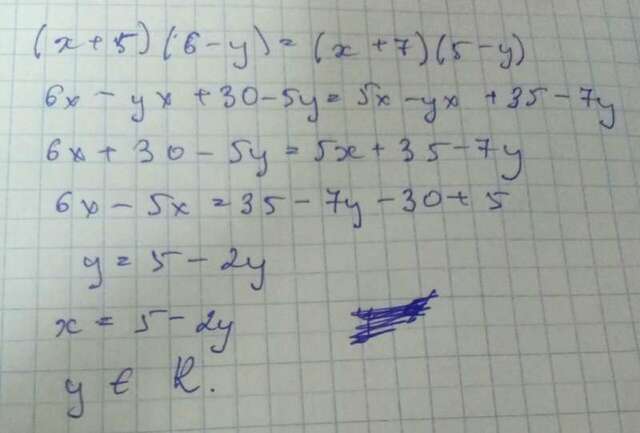 (x+5)(6-y)=(x+7)(5-y)
6x-yx+30-5y=5x-yx+35-7y
6x+30-5y=5x+35-7y
6x-5x=35-7y-30+5
y=5-2y
x=5-2y
y ∈ R.